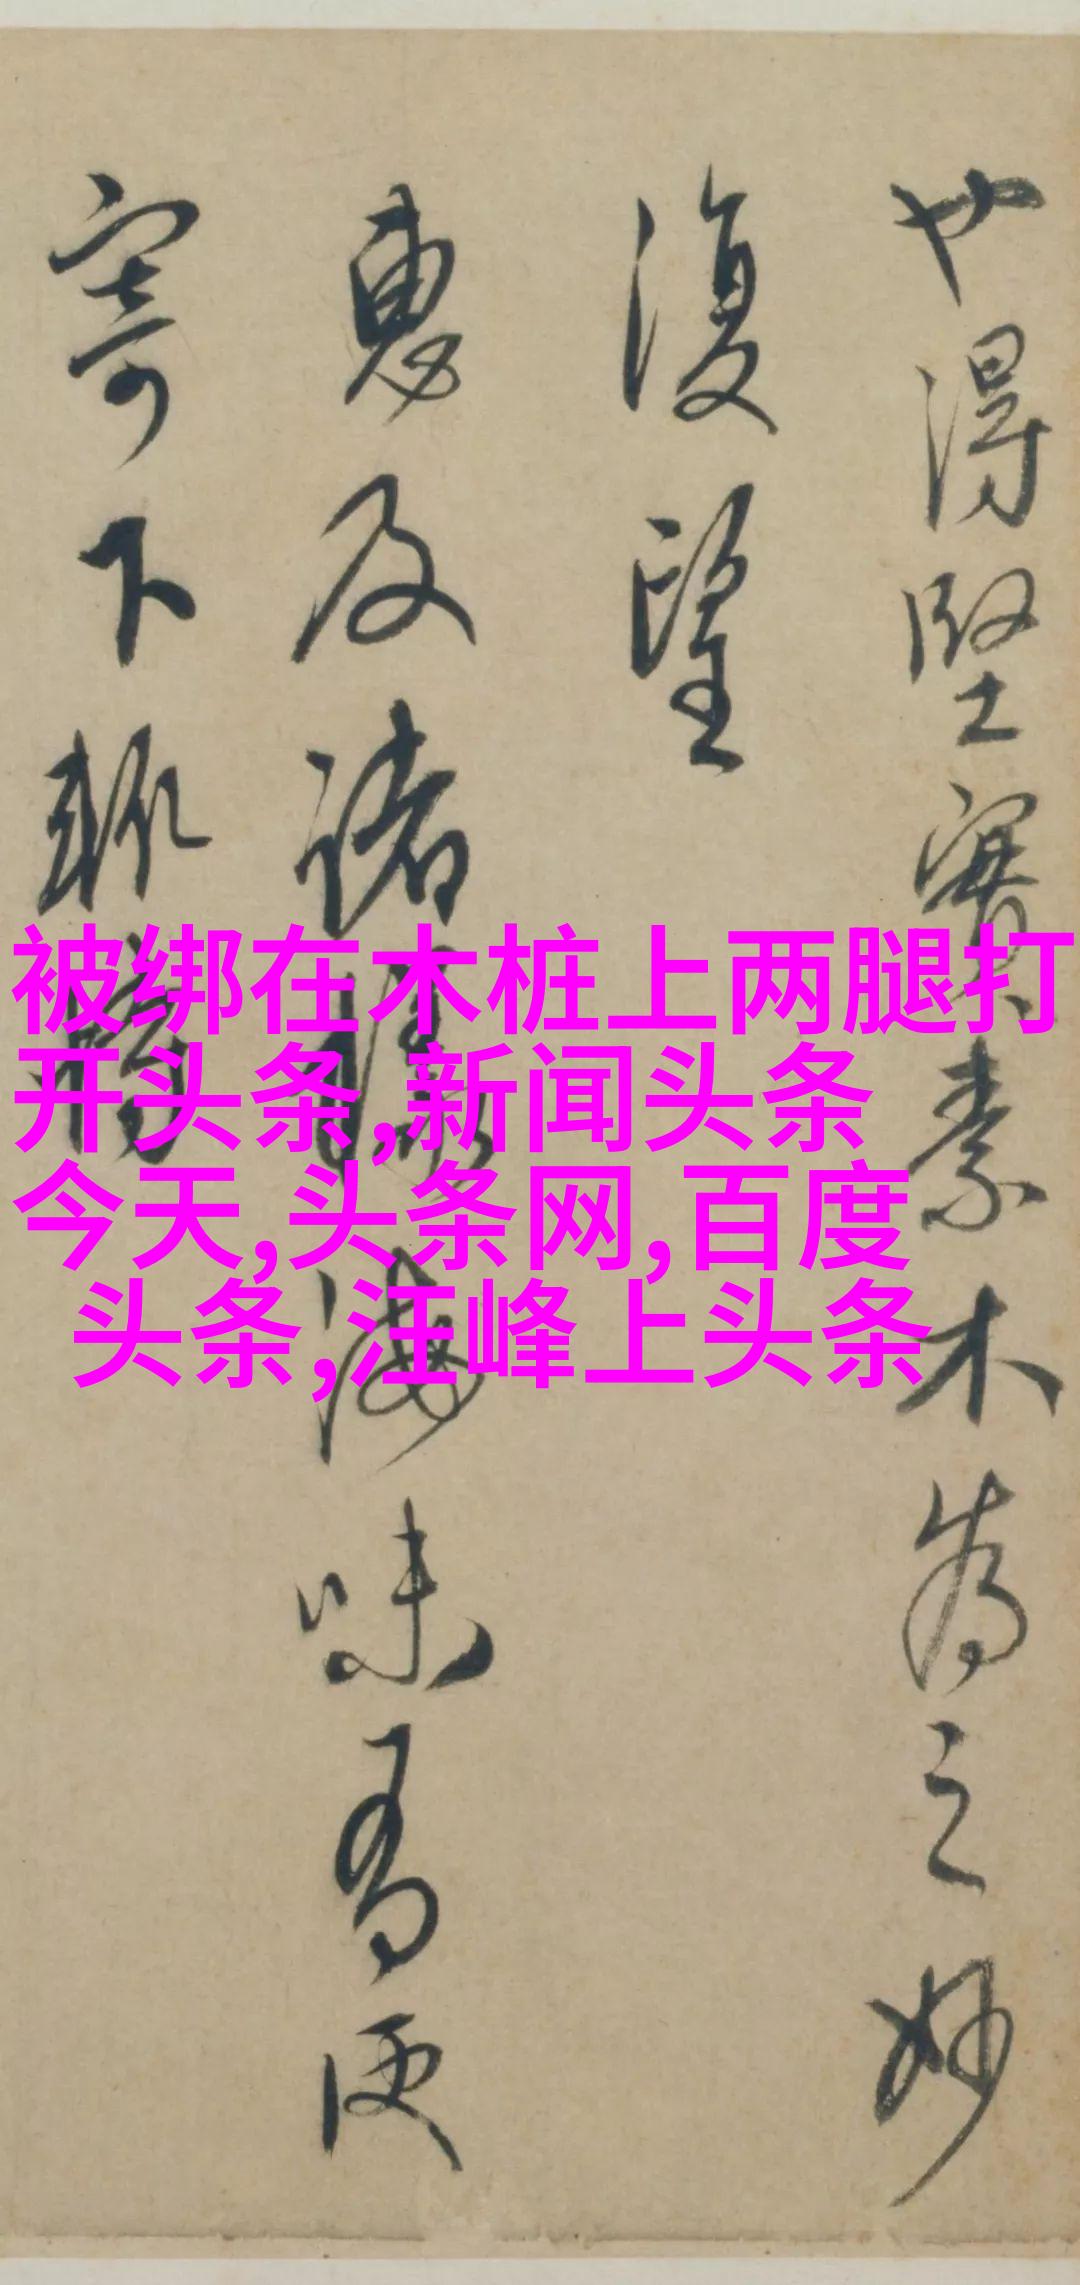 也得坚實素木為之妙
復望
惠及诸
海味為便
寄下
被绑在木桩上两腿打
开头条,新闻头条
今天,头条网,百度
头条,汪峰上头条